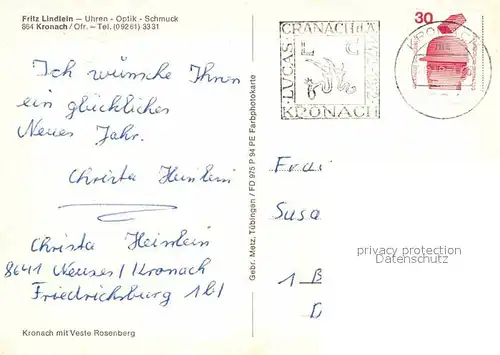 Fritz Lindlein — Uhren - Optik - Schmuck
864 Kronach / Ofr. – Tel. (09261) 3331
Ich wünsche Ihnen
ein glückliches
Neues Jahr.
Christa Heinlein
Christa Heinlein
8641 Neuses / Kronach
Friedrichsburg 1b1
Kronach mit Veste Rosenberg
Gebr. Metz, Tübingen / FD 975 P 94 PE Farbphotokarte
LUCAS CRANACH d.Ä.
L C
KRONACH
KRONACH
30
Frau
Susa
1 B
D
privacy protection
Datenschutz